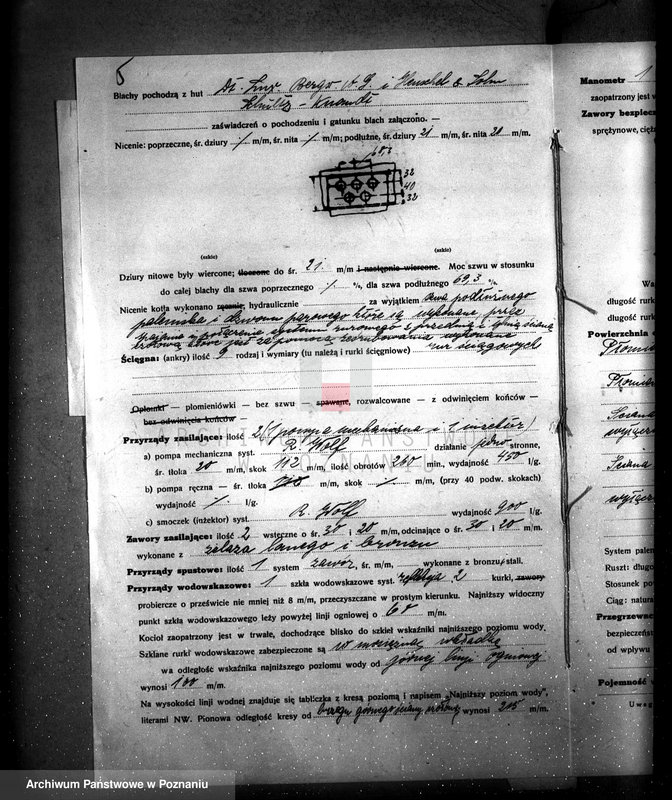 5
Blachy pochodzą z hut Dt. Bergw A G. i Henschel & Sohn
zaświadczeń o pochodzeniu i gatunku blach załączono. —
Nicenie: poprzeczne, śr. dziury / m/m, śr. nita / m/m; podłużne, śr. dziury 21 m/m, śr. nita 20 m/m.
32
40
32
(szkic) (szkic)
Dziury nitowe były wiercone; tłoczone do śr. 21 m/m i następnie wiercone. Moc szwu w stosunku
do całej blachy dla szwa poprzecznego / %, dla szwa podłużnego 69,3 %
Nicenie kotła wykonano ręcznie, hydraulicznie za wyjątkiem dna podłużnego
palenska i dzwonu parowego które są wykonane przez
Ścięgna: (ankry) ilość 9 rodzaj i wymiary (tu należą i rurki ścięgniowe) rur ściągowych
Opłonki — płomieniówki — bez szwu — spawane, rozwalcowane — z odwinięciem końców —
bez odwinięcia końców —
Przyrządy zasilające: ilość 2/1 pompa mechaniczna i 1 inżektor/
a) pompa mechaniczna syst. R. Wolf działanie jedno stronne,
śr. tłoka 20 m/m, skok 112 m/m, ilość obrotów 260 min., wydajność 450 l/g.
b) pompa ręczna — śr. tłoka m/m, skok / m/m, (przy 40 podw. skokach)
wydajność / l/g.
c) smoczek (inżektor) syst. R. Wolf wydajność 900 l/g.
Zawory zasilające: ilość 2 wsteczne o śr. 30 i 20 m/m, odcinające o śr. 30 i 20 m/m.
wykonane z żelaza lanego i bronzu
Przyrządy spustowe: ilość 1 system zawór, śr. m/m, wykonane z bronzu, stali.
Przyrządy wodowskazowe: 1 szkła wodowskazowe syst. 2 kurki, zawory
probiercze o prześwicie nie mniej niż 8 m/m, przeczyszczane w prostym kierunku. Najniższy widoczny
punkt szkła wodowskazowego leży powyżej linji ogniowej o 60 m/m.
Kocioł zaopatrzony jest w trwałe, dochodzące blisko do szkieł wskaźniki najniższego poziomu wody.
Szklane rurki wodowskazowe zabezpieczone są w mosiężną wkładkę
wa odległość wskaźnika najniższego poziomu wody od górnej linji ogniowej
wynosi 100 m/m.
Na wysokości linji wodnej znajduje się tabliczka z kresą poziomą i napisem „Najniższy poziom wody”,
literami NW. Pionowa odległość kresy od brzegu górnego ściany wynosi 215 m/m.
Manometr 1
zaopatrzony jest w
Zawory bezpiec
sprężynowe, cięż
Wa
długość rurk
długość rurk
Powierzchnia o
Płomie
Płomien
Ściana
Ściana
System palen
Ruszt: długo
Stosunek po
Ciąg: natura
Przegrzewac
bezpieczeńs
od wpływu
Pojemność w
Uwag
ARCHIWUM PAŃSTWOWE
W POZNANIU
Archiwum Państwowe w Poznaniu